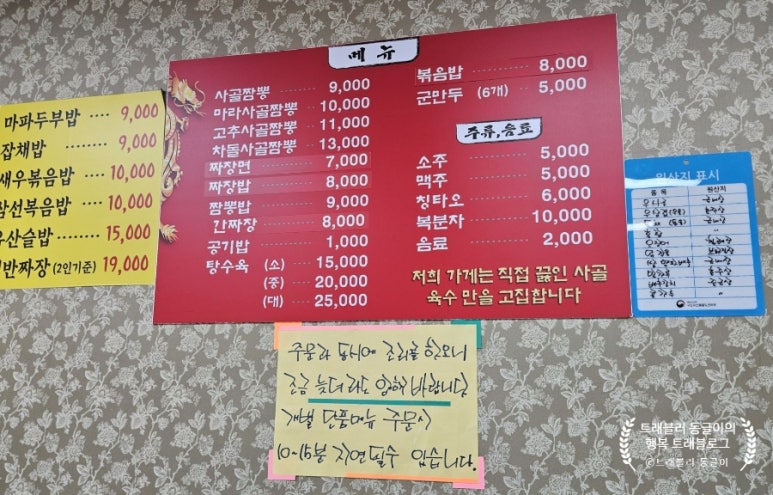 마파두부밥 ···· 9,000
잡채밥 ······ 9,000
새우볶음밥 ···· 10,000
삼선볶음밥 ···· 10,000
유산슬밥 ······· 15,000
쟁반짜장 (2인기준) 19,000
메뉴
사골짬뽕 ······ 9,000
마라사골짬뽕 ··· 10,000
고추사골짬뽕 ··· 11,000
차돌사골짬뽕 ··· 13,000
짜장면 ······ 7,000
짜장밥 ······ 8,000
짬뽕밥 ······ 9,000
간짜장 ······ 8,000
공기밥 ······ 1,000
탕수육 (소) ··· 15,000
(중) ··· 20,000
(대) ··· 25,000
볶음밥 ······ 8,000
군만두 (6개) ·· 5,000
주류,음료
소주 ········ 5,000
맥주 ········ 5,000
칭타오 ······ 6,000
복분자 ······ 10,000
음료 ········ 2,000
저희 가게는 직접 끓인 사골
육수 만을 고집합니다
원산지 표시
품목 원산지
주문과 동시에 조리를 하오니
조금 늦더라도 양해 바랍니다
개별 단품메뉴 주문시
10~15분 지연될수 있습니다.
트래블러 둥글이의
행복 트래블로그
©트래블러 둥글이